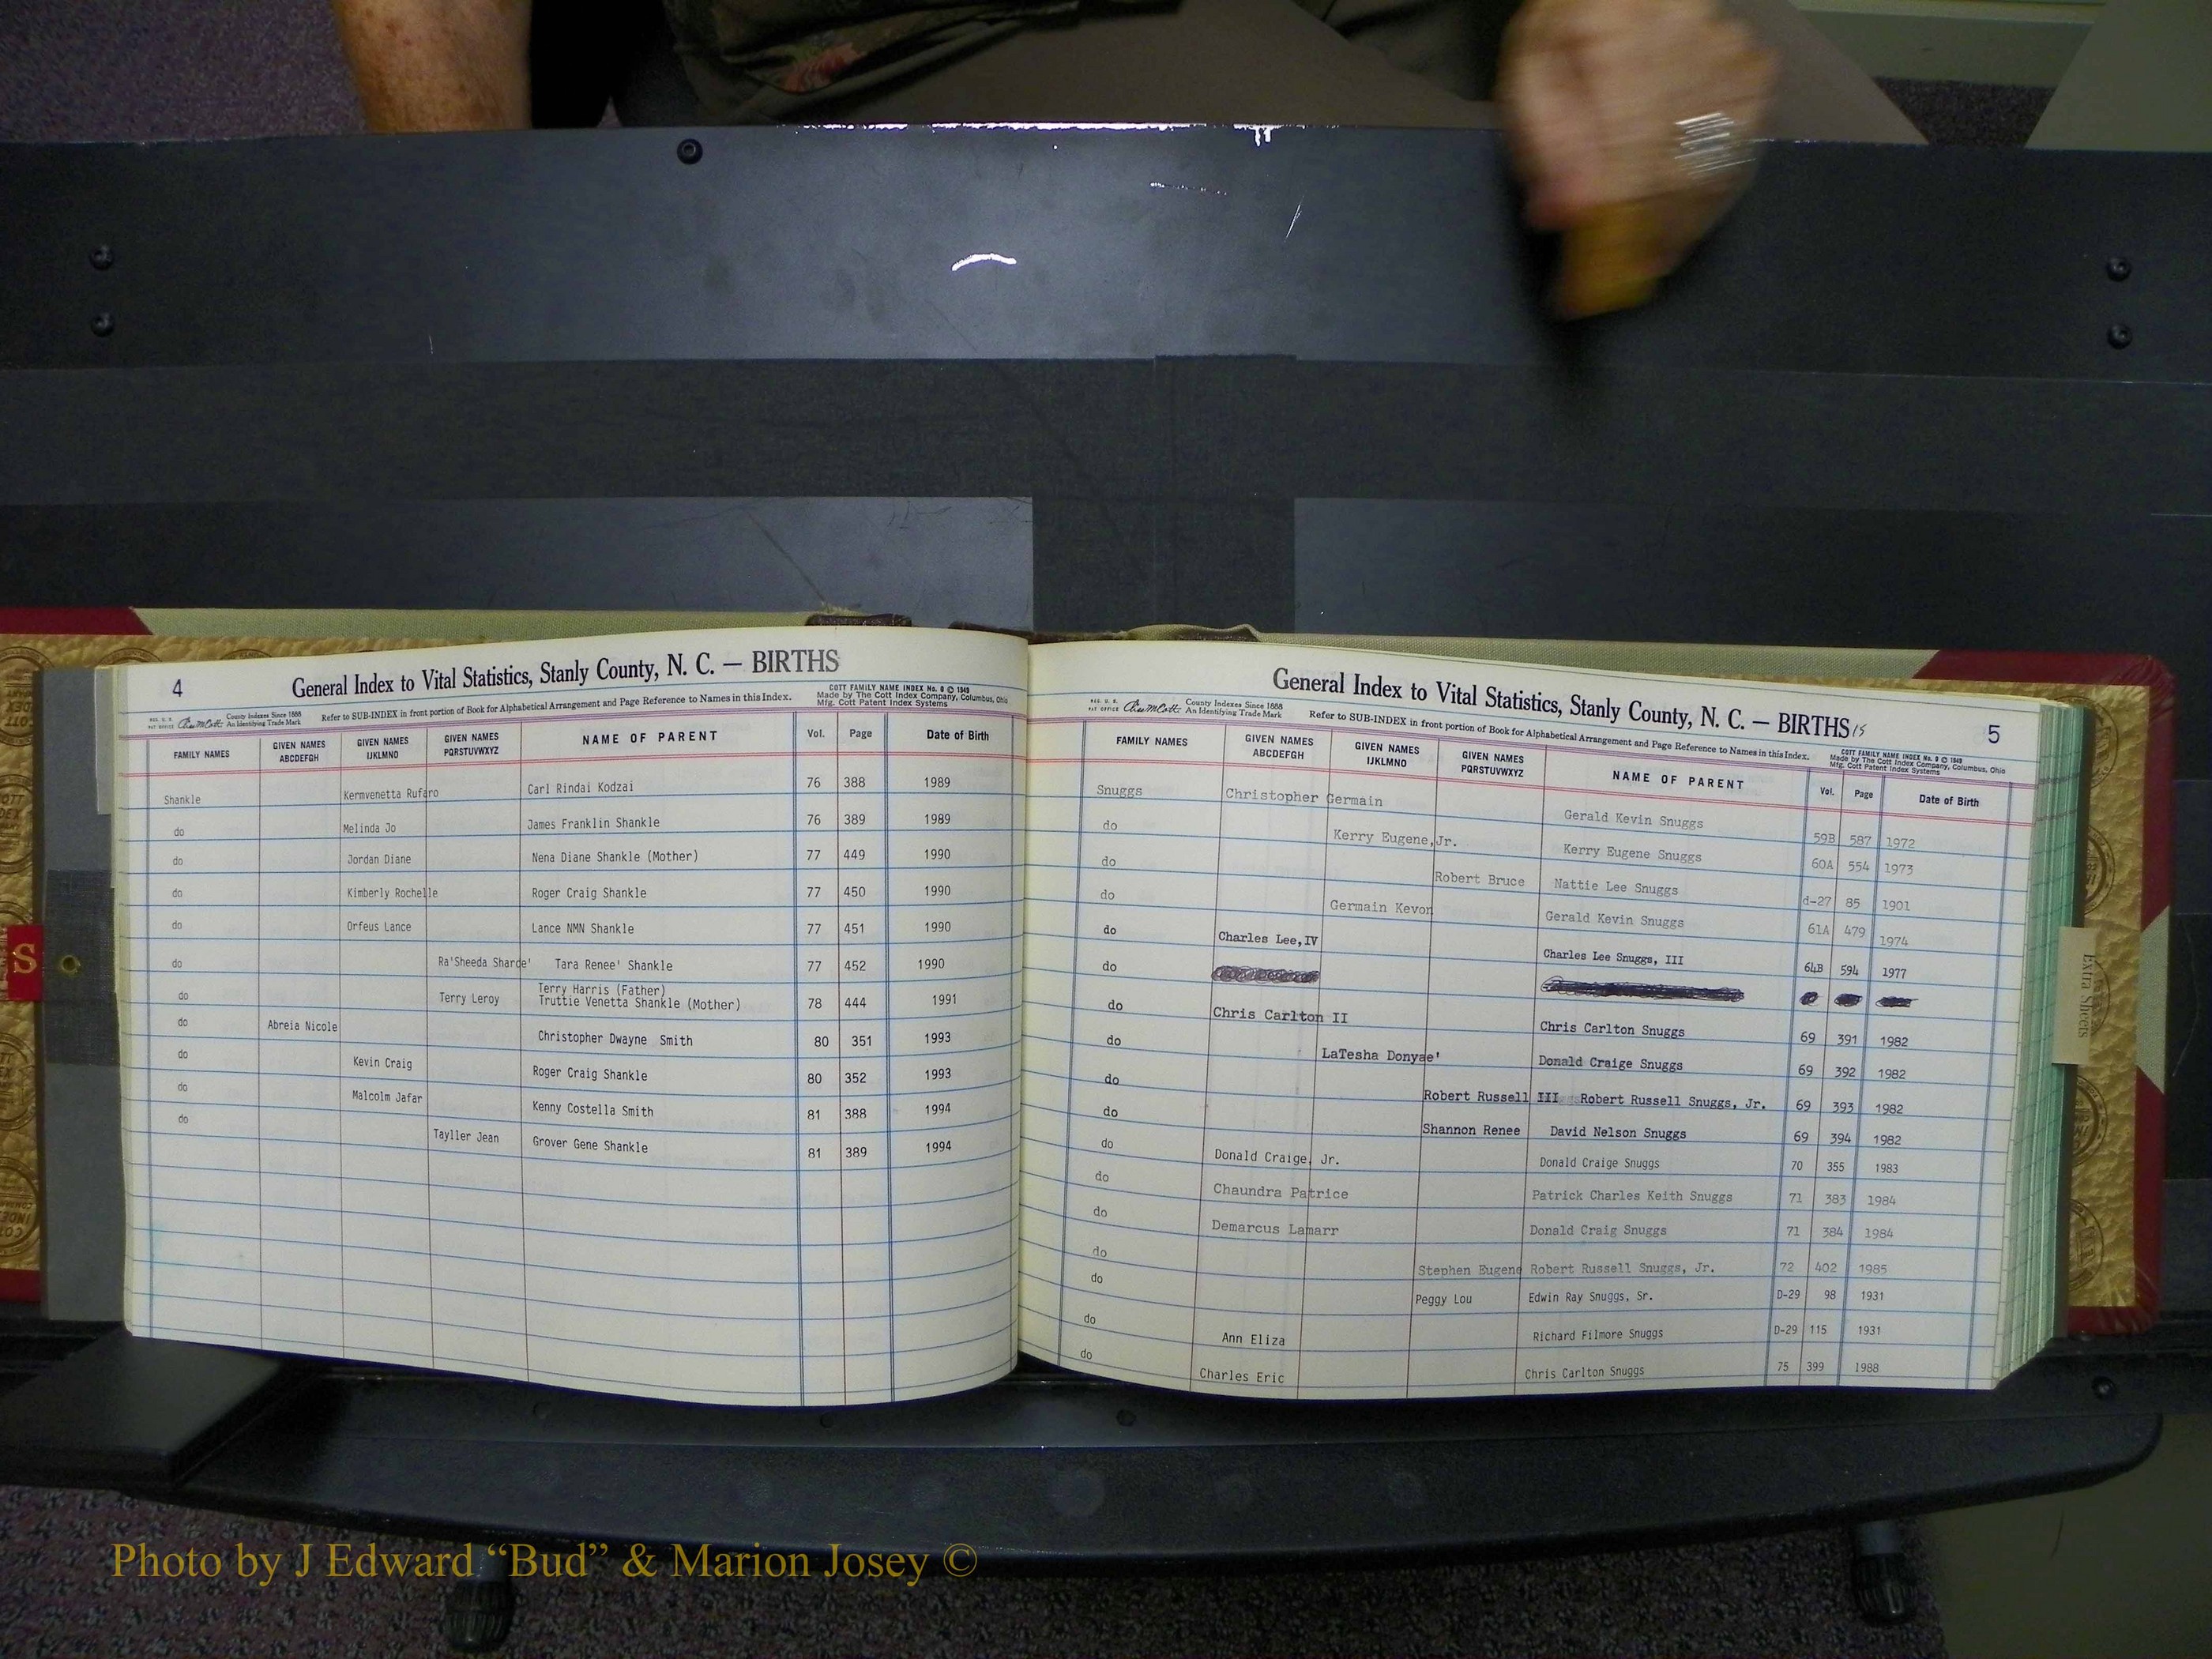 4
General Index to Vital Statistics, Stanly County, N. C. — BIRTHS
REG. U. S. PAT OFFICE County Indexes Since 1888 An Identifying Trade Mark
Refer to SUB-INDEX in front portion of Book for Alphabetical Arrangement and Page Reference to Names in this Index.
COTT FAMILY NAME INDEX No. 9 © 1949
Made by The Cott Index Company, Columbus, Ohio
Mfg. Cott Patent Index Systems
FAMILY NAMES GIVEN NAMES ABCDEFGH GIVEN NAMES IJKLMNO GIVEN NAMES PQRSTUVWXYZ NAME OF PARENT Vol. Page Date of Birth
Shankle Kermvenetta Rufaro Carl Rindai Kodzai 76 388 1989
do Melinda Jo James Franklin Shankle 76 389 1989
do Jordan Diane Nena Diane Shankle (Mother) 77 449 1990
do Kimberly Rochelle Roger Craig Shankle 77 450 1990
do Orfeus Lance Lance NMN Shankle 77 451 1990
do Ra'Sheeda Sharde' Tara Renee' Shankle 77 452 1990
do Terry Leroy Terry Harris (Father) Truttie Venetta Shankle (Mother) 78 444 1991
do Abreia Nicole Christopher Dwayne Smith 80 351 1993
do Kevin Craig Roger Craig Shankle 80 352 1993
do Malcolm Jafar Kenny Costella Smith 81 388 1994
do Tayller Jean Grover Gene Shankle 81 389 1994
General Index to Vital Statistics, Stanly County, N. C. — BIRTHS 15
5
REG. U. S. PAT OFFICE County Indexes Since 1888 An Identifying Trade Mark
Refer to SUB-INDEX in front portion of Book for Alphabetical Arrangement and Page Reference to Names in this Index.
COTT FAMILY NAME INDEX No. 9 © 1949
Made by The Cott Index Company, Columbus, Ohio
Mfg. Cott Patent Index Systems
FAMILY NAMES GIVEN NAMES ABCDEFGH GIVEN NAMES IJKLMNO GIVEN NAMES PQRSTUVWXYZ NAME OF PARENT Vol. Page Date of Birth
Snuggs Christopher Germain Gerald Kevin Snuggs 59B 587 1972
do Kerry Eugene, Jr. Kerry Eugene Snuggs 60A 554 1973
do Robert Bruce Nattie Lee Snuggs d-27 85 1901
do Germain Kevon Gerald Kevin Snuggs 61A 479 1974
do Charles Lee, IV Charles Lee Snuggs, III 64B 594 1977
do
do Chris Carlton II Chris Carlton Snuggs 69 391 1982
do LaTesha Donyae' Donald Craige Snuggs 69 392 1982
do Robert Russell III Robert Russell Snuggs, Jr. 69 393 1982
do Shannon Renee David Nelson Snuggs 69 394 1982
do Donald Craige, Jr. Donald Craige Snuggs 70 355 1983
do Chaundra Patrice Patrick Charles Keith Snuggs 71 383 1984
do Demarcus Lamarr Donald Craig Snuggs 71 384 1984
do Stephen Eugene Robert Russell Snuggs, Jr. 72 402 1985
do Peggy Lou Edwin Ray Snuggs, Sr. D-29 98 1931
do Ann Eliza Richard Filmore Snuggs D-29 115 1931
do Charles Eric Chris Carlton Snuggs 75 399 1988
S
Extra Sheets
Photo by J Edward “Bud” & Marion Josey ©